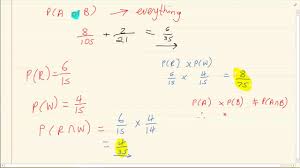 P(A or B) → everything
8/105 + 2/21 = 6/35
P(R) = 6/15
P(R) x P(W)
6/15 x 4/15 = 8/75
P(W) = 4/15
P(A) x P(B) ≠ P(A∩B)
∴ x
P(R∩W) = 6/15 x 4/14
= 4/35